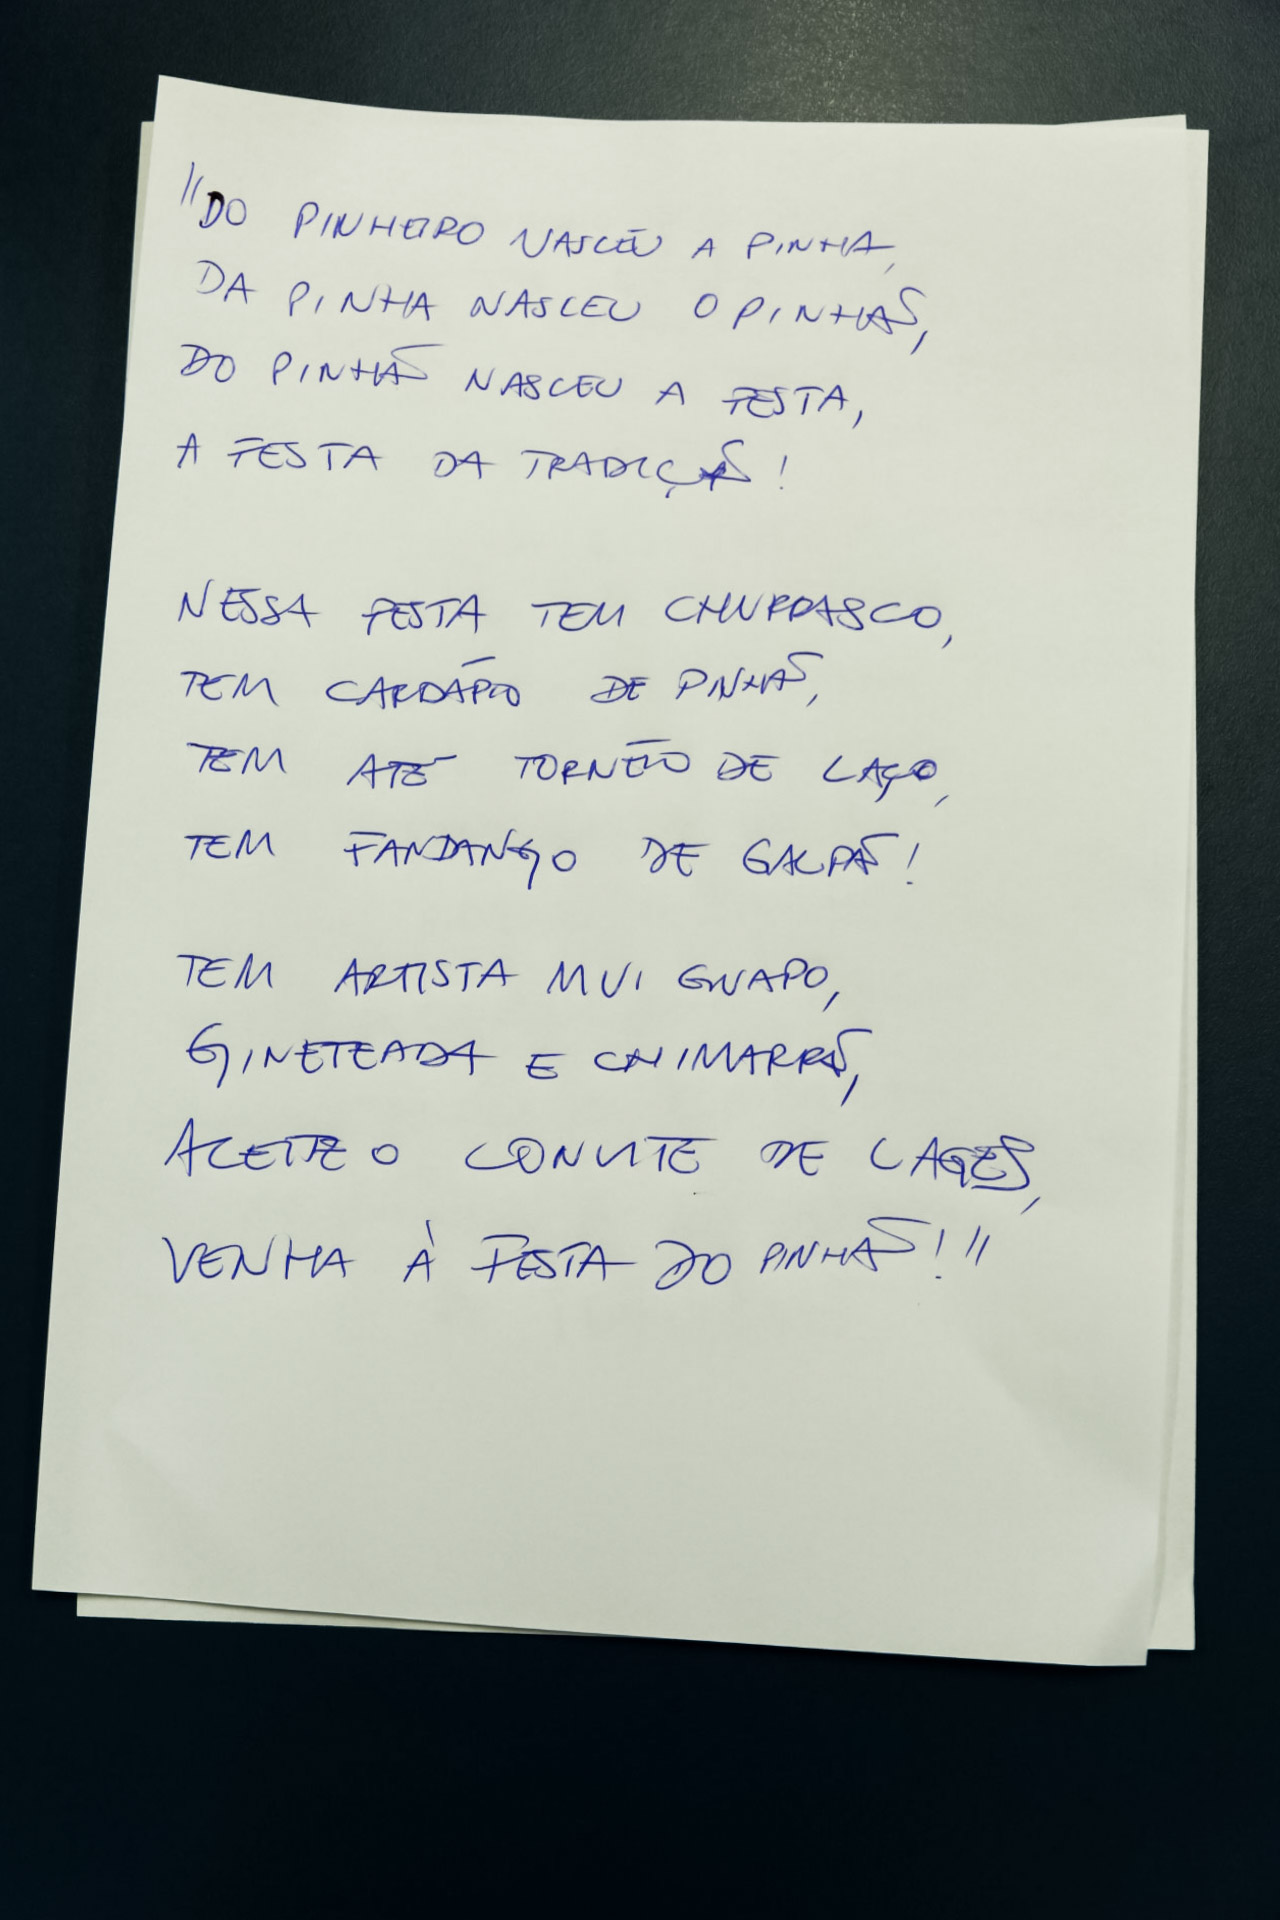 "DO PINHEIRO NASCEU A PINHA,
DA PINHA NASCEU O PINHÃO,
DO PINHÃO NASCEU A FESTA,
A FESTA DA TRADIÇÃO!
NESSA FESTA TEM CHURRASCO,
TEM CARDÁPIO DE PINHÃO,
TEM ATÉ TORNEIO DE LAÇO,
TEM FANDANGO DE GALPÃO!
TEM ARTISTA MUI GUAPO,
GINETEADA E CHIMARRÃO,
ACEITE O CONVITE DE LAGES,
VENHA À FESTA DO PINHÃO!"